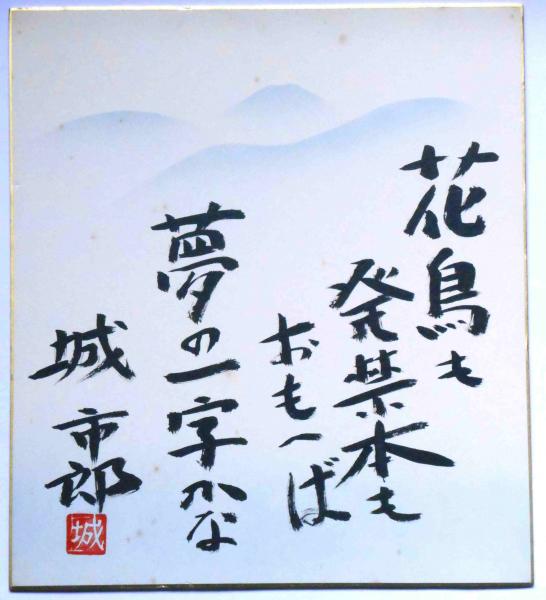 花鳥も
発禁本も
おもへば
夢の一字かな
城市郎
城